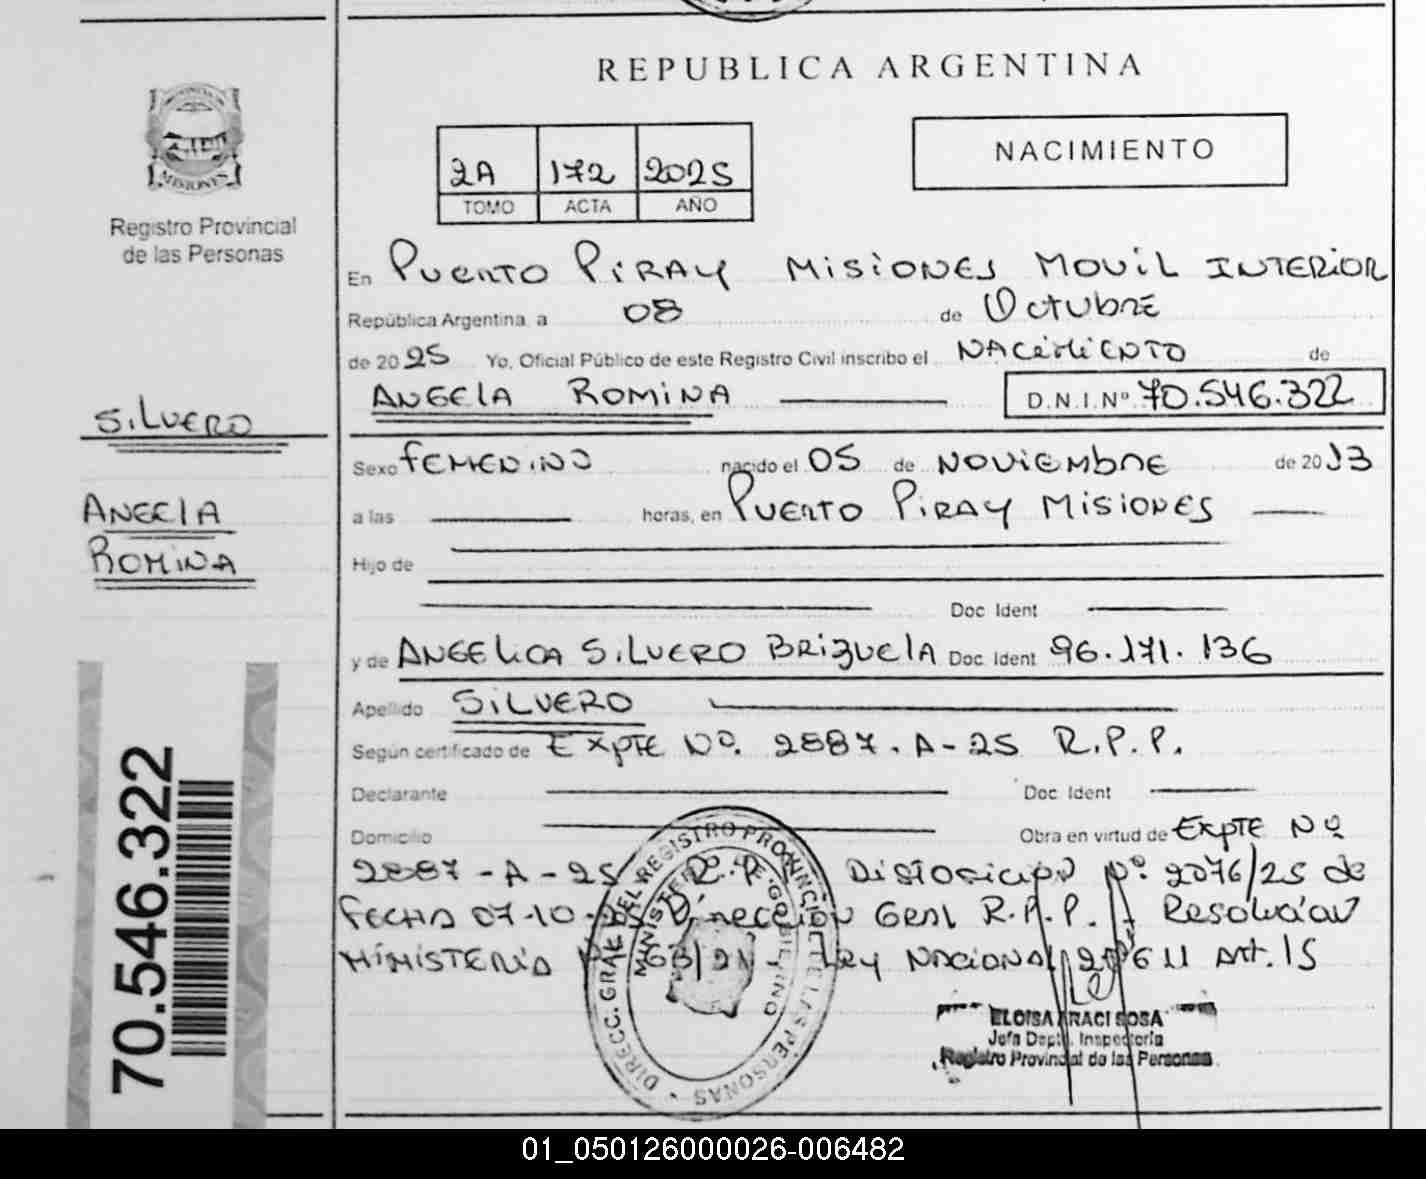 REPUBLICA ARGENTINA
NACIMIENTO
2A 172 2025
TOMO ACTA AÑO
MISIONES
Registro Provincial
de las Personas
En Puerto Piray Misiones Movil Interior
República Argentina a 08 de Octubre
de 2025 Yo, Oficial Público de este Registro Civil inscribo el Nacimiento de
Angela Romina D.N.I.Nº 70.546.322
Silvero
Angela
Romina
Sexo Femenino nacido el 05 de Noviembre de 2013
a las horas, en Puerto Piray Misiones
Hijo de
Doc Ident
y de Angelica Silvero Brizuela Doc Ident 96.171.136
Apellido Silvero
Según certificado de Expte Nº. 2887.A-25 R.P.P.
Declarante Doc Ident
Domicilio Obra en virtud de Expte Nº
2887-A-25 R.P.P. Disposicion Nº. 2076/25 de
Fecha 07-10-25 Direccion Gral R.P.P. Resolucion
Ministerio Ley Nacional Art. 15
DIRECC. GRAL. DEL REGISTRO PROVINCIAL DE LAS PERSONAS
MINISTERIO DE GOBIERNO
ELOISA ARACI SOSA
Jefa Depto. Inspectoria
Registro Provincial de las Personas
70.546.322
01_050126000026-006482